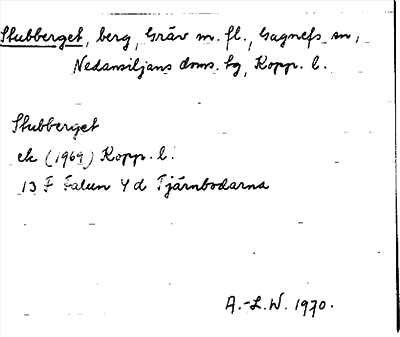 Stubberget, berg, Gräv m. fl., Gagnefs sn,
Nedansiljans doms. tg, Kopp. l.
Stubberget
ek (1969) Kopp. l.
13 F Falun 4 d Tjärnbodarna
A.-L.W. 1970.